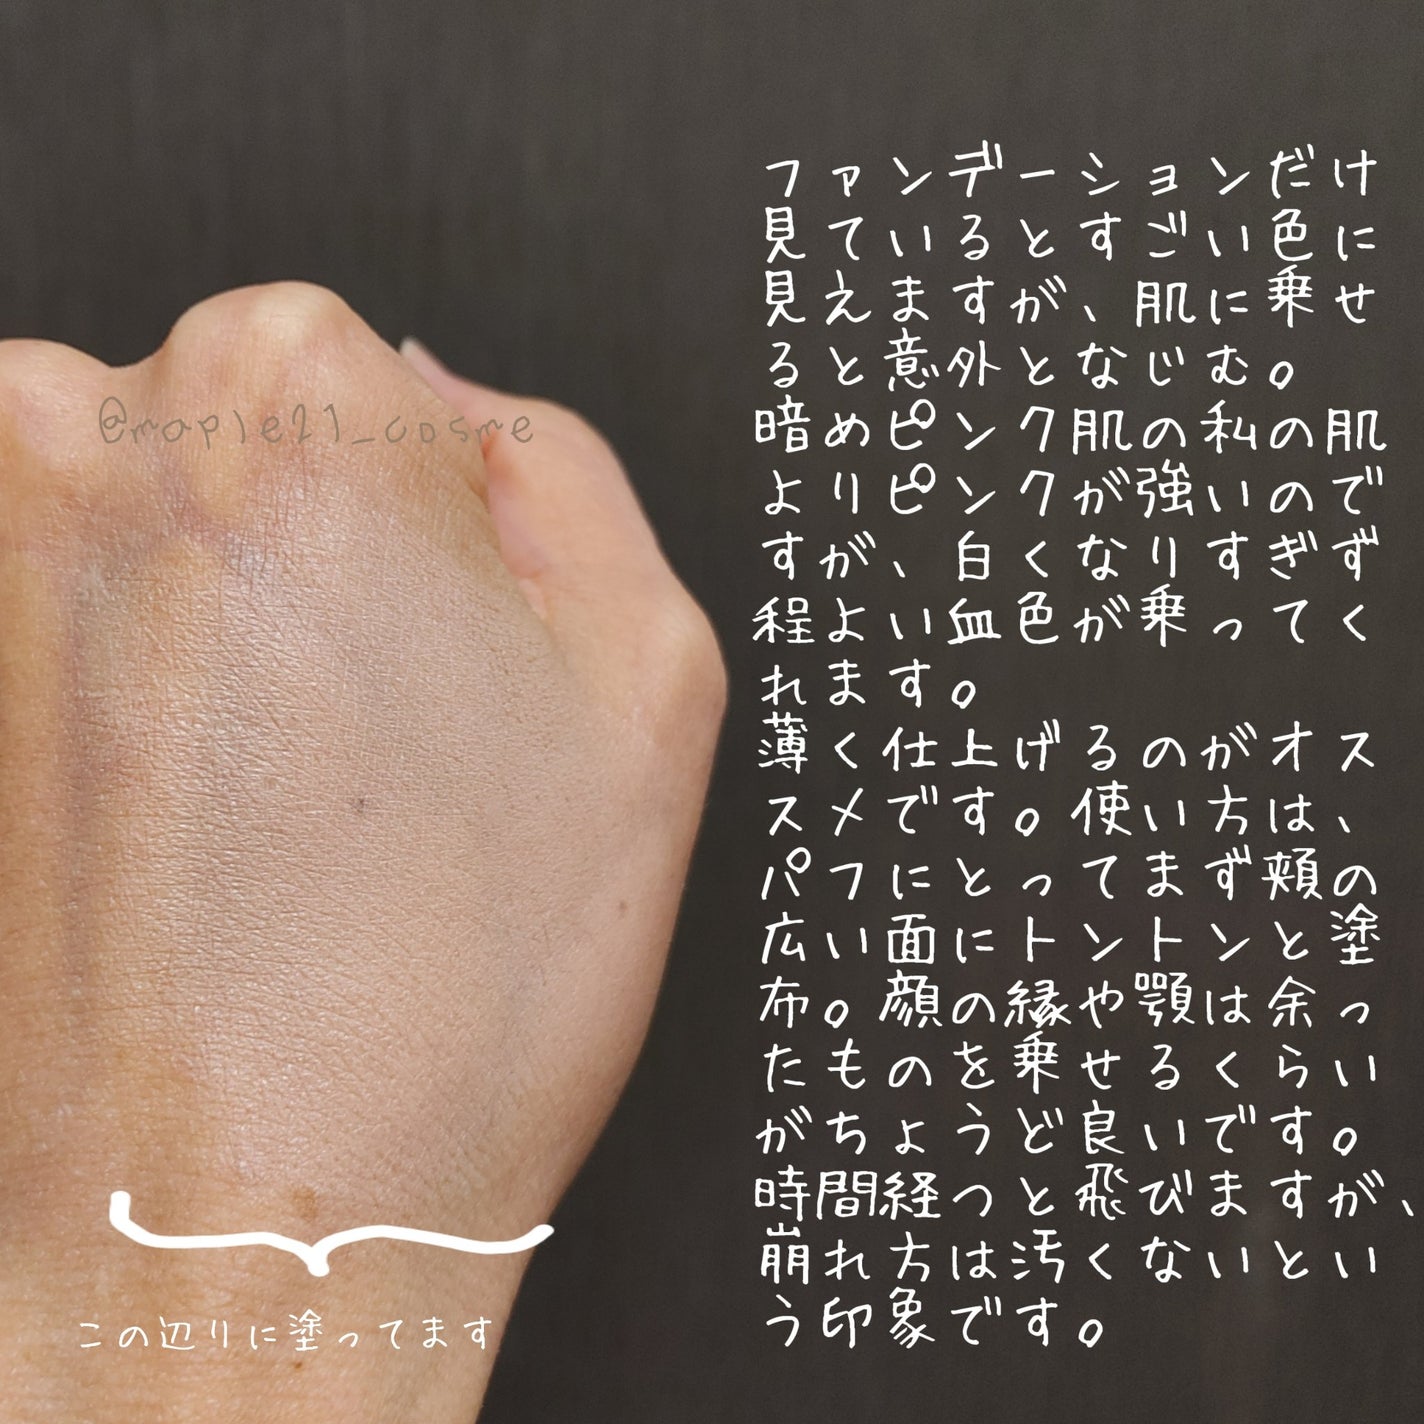 ファンデーションだけ
見ているとすごい色に
見えますが、肌に乗せ
ると意外となじむ。
暗めピンク肌の私の肌
よりピンクが強いので
すが、白くなりすぎず
程よい血色が乗ってく
れます。
薄く仕上げるのがオス
スメです。使い方は、
パフにとってまず頬の
広い面にトントンと塗
布。顔の縁や顎は余っ
たものを乗せるくらい
がちょうど良いです。
時間経つと飛びますが、
崩れ方は汚くないとい
う印象です。
@maple21_cosme
この辺りに塗ってます